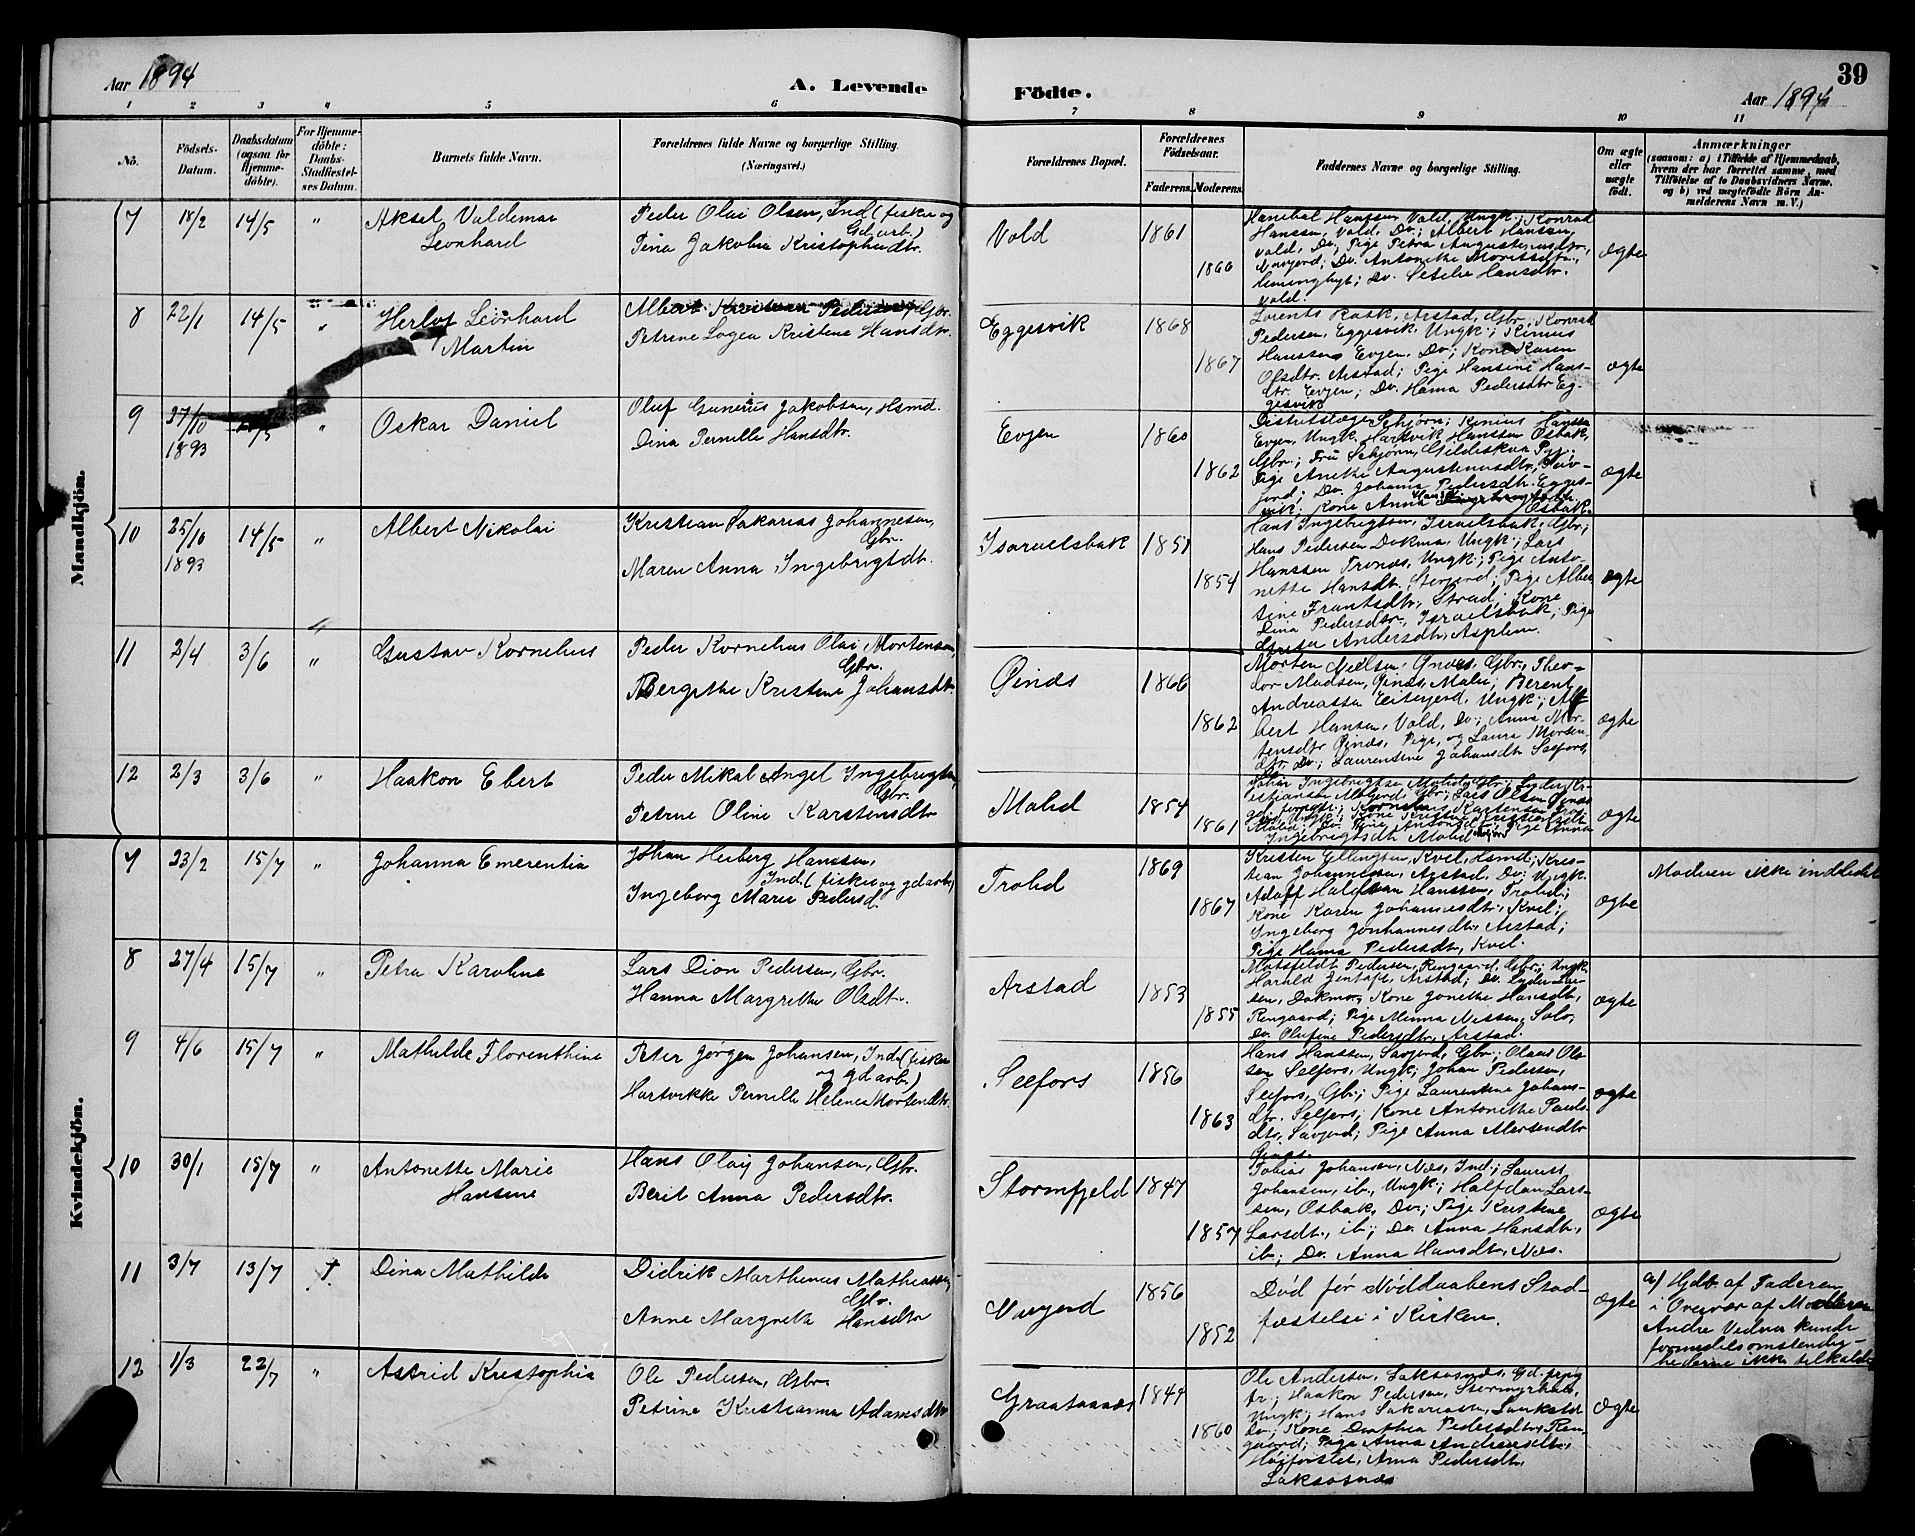 39
Aar 1894
A. Levende
Födte.
Aar 1894
1 2 3 4 5 6 7 8 9 10 11
No.
Födsels-
Datum.
Daabsdatum
(ogsaa for
Hjemme-
döbte).
For Hjemme-
döbte:
Daabs-
Stadfæstel-
ses Datum.
Barnets fulde Navn.
Forældrenes fulde Navne og borgerlige Stilling.
(Næringsvei.)
Forældrenes Bopæl.
Forældrenes
Födselsaar.
Faderens. Moderens.
Faddernes Navne og borgerlige Stilling.
Om ægte
eller
uægte
födt.
Anmærkninger
(saasom: a) i Tilfælde af Hjemmedaab,
hvem der har forrettet samme, med
Tilföielse af to Daabsvidners Navne,
og b) ved uægtefödte Börn An-
melderens Navn m. V.)
Mandkjön.
7 18/2 14/5 " Aksel Valdemar
Leonhard
Peder Olai Olsen, Ind (fisker og
Gdarb.)
Pina Jakobia Kristophersdtr.
Vold 1861
1866
Hanibal Hanssen Vold, Ungk.; Konrad
Hanssen, Vold, Do.; Albert Hanssen,
Vold, Do.; Pige Petra Augustinusdtr.,
Do. Antonette Moritsdtr.,
Do. Hansdtr.
Vold.
ægte
8 22/1 14/5 " Herlof Leonhard
Martin
Albert Kristian Pedersen, Gbr.
Petrine Logea Kristine Hansdtr.
Eggesvik 1868
1867
Lorents Rask, Arstad, Gbr.; Konrad
Pedersen, Eggesvik, Ungk.; Kinius
Hanssen Evjen, Do.; Kone Karen
Olsdtr. Arstad; Pige Hansine Hans-
dtr. Evjen; Do. Hanna Pedersdtr. Eg-
gesvik
ægte
9 27/10
1893
14/5 " Oskar Daniel
Oluf Gunerius Jakobsen, Hsmd.
Dina Pernille Hansdtr.
Evjen 1860
1862
Distriktslæge Schjørn; Kinius Hanssen
Evjen, Ungk. Hartvik Hanssen Osbak,
Gbr.; Fru Schjørn, Gildeskaa Pgj.;
Pige Anette Augustinusdtr.,
Do. Johanna Pedersdtr. Egges-
vik; Kone Anna
Osbak.
ægte
10 25/10
1893
14/5 " Albert Nikolai
Kristian Sakarias Johannesen,
Gbr.
Maren Anna Ingebrigtsdtr.
Israelsbak 1851
1854
Hans Ingebrigtsen, Israelsbak, Gbr.;
Hans Pedersen Dokmo, Ungk.; Lars
Hanssen Trones, Ungk.; Pige Anto-
nette Hansdtr. Storjord; Pige Alber-
tine Frantsdtr., Strad; Kone
Dina Pedersdtr. Israelsbak; Pige
Andersdtr. Asphem.
ægte
11 2/4 3/6 " Gustav Kornelius
Peder Kornelius Olai Mortensen,
Gbr.
Bergitte Kristine Johansdtr.
Øinæs 1866
1862
Morten Nielsen, Øinæs, Gbr., Theo-
dor Madsen, Øinæs, Maler; Berent
Andreassen Eiterjord, Ungk.; Al-
bert Hansen, Vold, Do.; Anna Mor-
tensdtr. Øinæs, Pige, og Laura Morten
dtr. Do.; Laurentine Johansdtr. Selfors.
ægte
12 2/3 3/6 " Haakon Ebert
Peder Mikal Angel Ingebrigtsen,
Gbr.
Petrine Oline Karstensdtr.
Molid 1854
1861
Johan Ingebrigtsen Molid, Gbr.;
Kornelius Karstensen
ægte
Kvindekjön.
7 23/2 15/7 " Johanna Emerentia
Johan Herberg Hanssen,
Ind. (fisker og gdarb.)
Ingeborg Marie Pedersd.
Trolid 1869
1867
Kristen Ellingsen, Kvil, Hsmd.; Kris-
tian Johannesen, Arstad, Do.; Ungk.
Adolf Halfdan Hanssen, Trolid;
Kone Karen Johannesdtr., Kvil;
Ingeborg Jonhannesdtr., Arstad;
Pige Hanna Pedersdtr., Kvil.
ægte
Moderen ikke indledet
8 27/4 15/7 " Petra Karoline
Lars Dion Pedersen, Gbr.
Hanna Margrethe Olsdtr.
Arstad 1853
1855
Matsfeldt Pedersen, Rengaard, Gbr.; Ungk.
Harald Jentoft, Arstad; Do. Lyder Lar-
sen, Dokmo, Kone Jonette Hansdtr.,
Rengaard; Pige Minna Nissen, Solv,
Do. Olufine Pedersdtr., Arstad.
ægte
9 4/6 15/7 " Mathilde Florenthine
Peter Jørgen Johansen, Ind (fisker
og gdarb.)
Hartvikke Pernille Helene Mortensdtr.
Selfors 1856
1863
Hans Hanssen, Savjord, Gbr.; Olaus Ol-
sen Selfors, Ungk.; Johan Pedersen,
Selfors, Gbr.; Pige Laurentine Johans-
dtr. Selfors; Kone Antonette Pauls-
dtr. Savjord; Pige Anna Mortensdtr.
Øinæs.
ægte
10 30/1 15/7 " Antonette Marie
Hansine
Hans Olaj Johansen, Gbr.
Berit Anna Pedersdtr.
Stormfjeld 1847
1857
Tobias Johansen, Næs, Ind.; Laurits
Johansen, ib., Ungk.; Halfdan Lars-
sen, Osbak, Do.; Pige Kristine
Larsdtr., ib.; Do. Anna Hansdtr.,
ib.; Do. Anna Hansdtr., Næs.
ægte
11 3/7 13/7 † Dina Mathilde
Didrik Marthinus Mathiassen
Gbr.
Anne Margrete Hansdtr
1856
1852
Død før Nøddaabens Stad-
fæstelse i Kirken.
ægte
a/ Hjdbt. af Faderen
i Overvær af Moderen
Andre Vidner kunde
formedelst omstændig-
hederne ikke tilkaldes
12 1/3 22/7 " Astrid Kristophia
Ole Pedersen, Gbr.
Petrine Kristianna Adamsdtr
Graataanæs 1844
1860
Ole Andersen, Laksosnæs, Gd.
Haakon Pedersen, Stormyrbak,
Ungk.; Hans Sakariassen,
Do.; Kone Dorthea Pedersdtr., Ren-
gaard; Pige Anna Andreasdtr.,
Høiforslet, Anna Pedersdtr.,
Laksosnæs
ægte